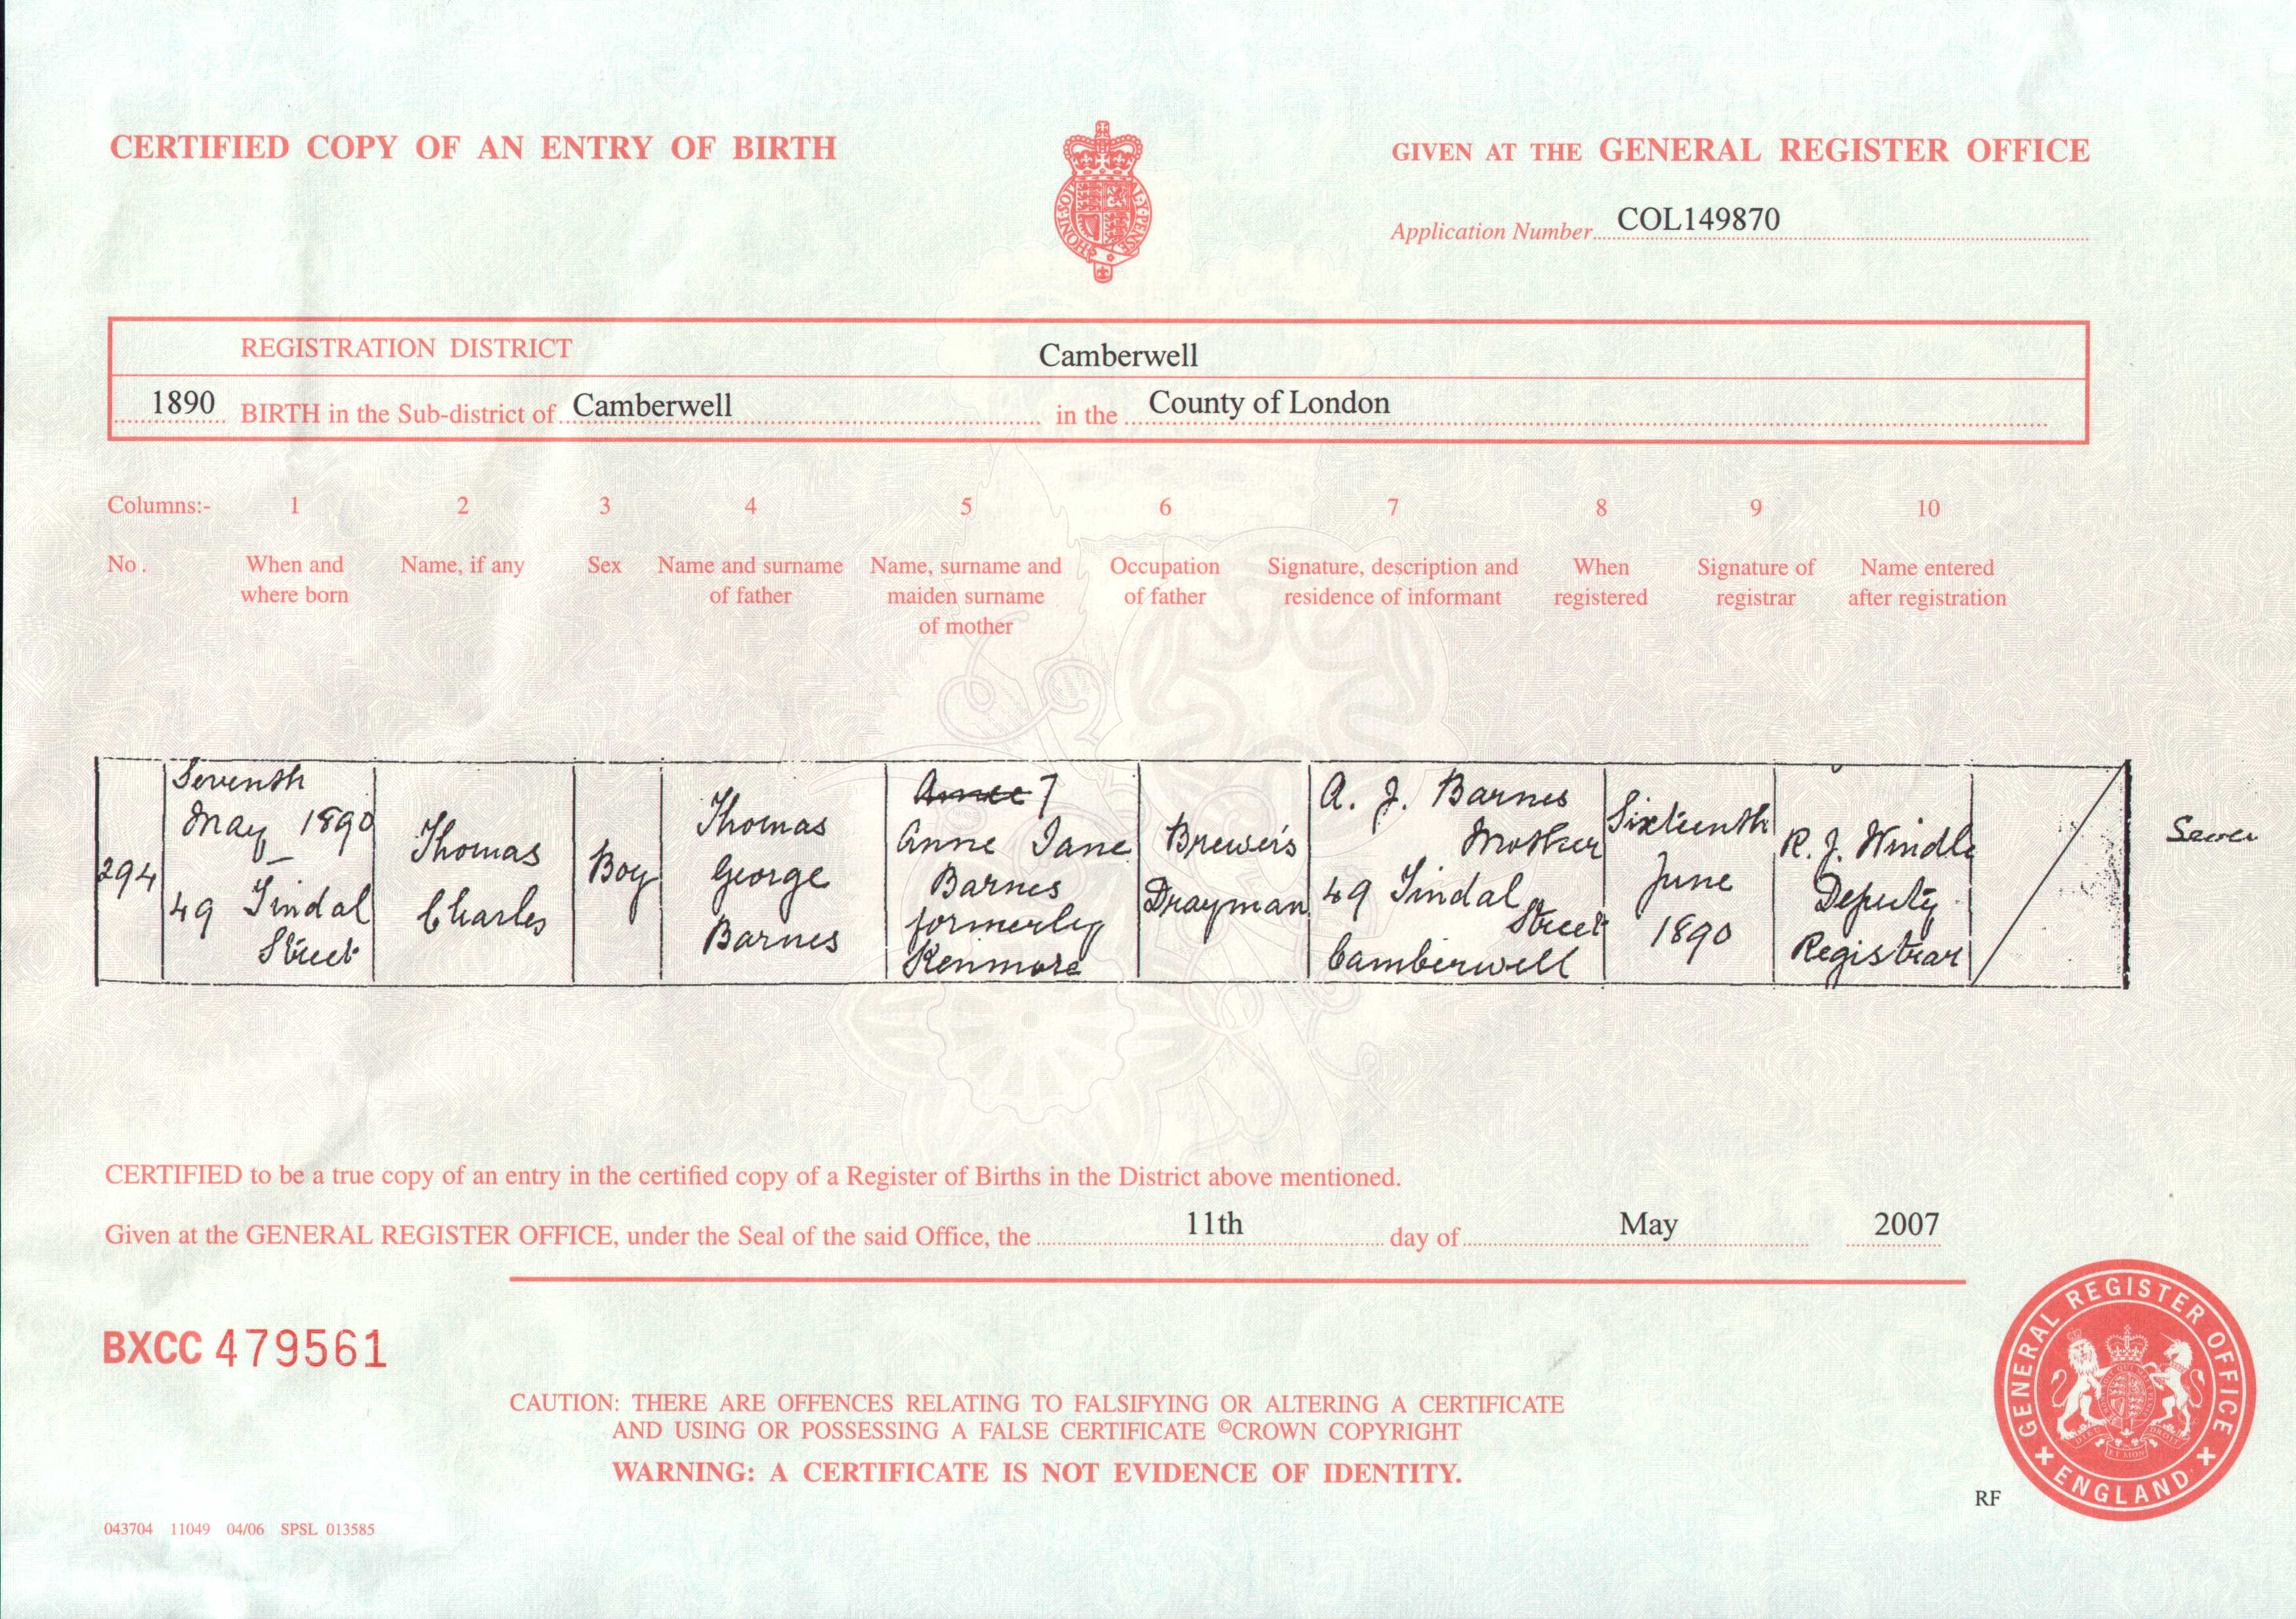 CERTIFIED COPY OF AN ENTRY OF BIRTH
GIVEN AT THE GENERAL REGISTER OFFICE
Application Number COL149870
REGISTRATION DISTRICT Camberwell
1890 BIRTH in the Sub-district of Camberwell in the County of London
Columns:- 1 2 3 4 5 6 7 8 9 10
No. When and where born
Name, if any
Sex
Name and surname of father
Name, surname and maiden surname of mother
Occupation of father
Signature, description and residence of informant
When registered
Signature of registrar
Name entered after registration
294
Seventh
May 1890
49 Tindal
Street
Thomas
Charles
Boy
Thomas
George
Barnes
Anne Jane
Barnes
formerly
Kenmore
Brewer's
Drayman
A. J. Barnes
Mother
49 Tindal
Street
Camberwell
Sixteenth
June
1890
R. J. Windle
Deputy
Registrar
CERTIFIED to be a true copy of an entry in the certified copy of a Register of Births in the District above mentioned.
Given at the GENERAL REGISTER OFFICE, under the Seal of the said Office, the 11th day of May 2007
BXCC 479561
CAUTION: THERE ARE OFFENCES RELATING TO FALSIFYING OR ALTERING A CERTIFICATE
AND USING OR POSSESSING A FALSE CERTIFICATE ©CROWN COPYRIGHT
WARNING: A CERTIFICATE IS NOT EVIDENCE OF IDENTITY.
GENERAL REGISTER OFFICE
ENGLAND
RF
043704 11049 04/06 SPSL 013585